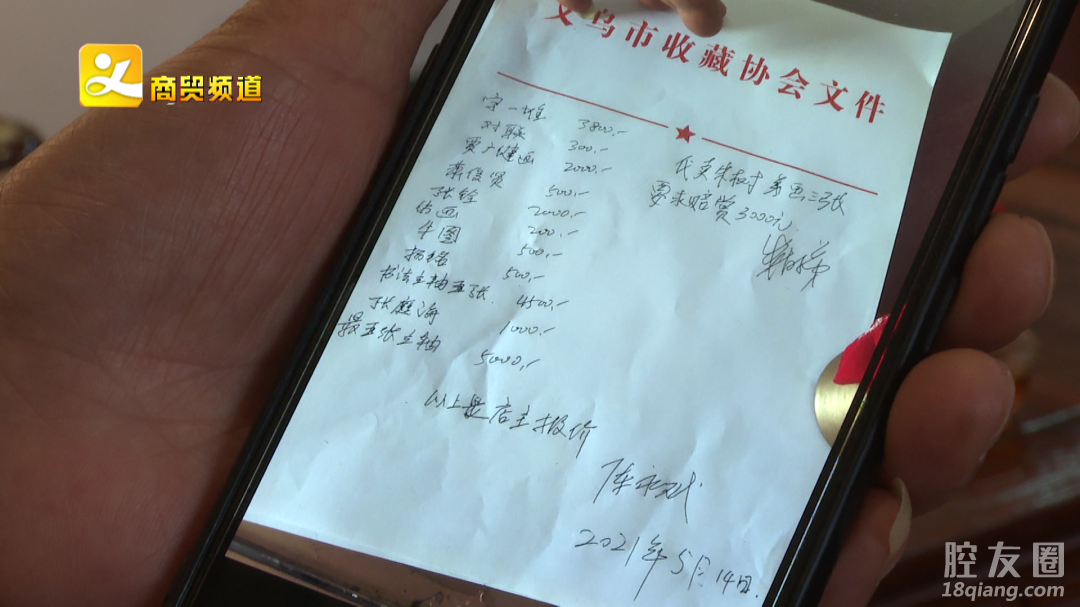 商贸频道
义乌市收藏协会文件
字一堆 3800.-
对联 300.-
贾广健画 2000.-
500.-
张铨 2000.-
古画 200.-
牛图 500.-
杨格 500.-
书法立轴五张 4500.-
张庭海 1000.-
最五张立轴 5000.-
以上是店主报价
画三张
要求赔赏3000元
陈
2021年5月14日.
腔友圈
18qiang.com